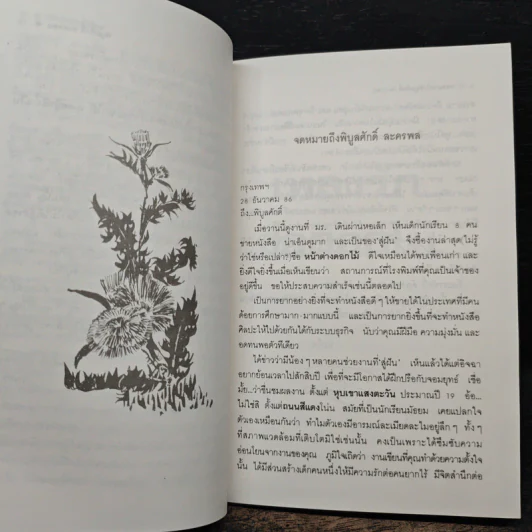 จดหมายถึงพิบูลศักดิ์ ละครพล
กรุงเทพฯ
28 ธันวาคม 86
ถึง..พิบูลศักดิ์
เมื่อวานนี้ดูงานที่ มร. เดินผ่านหอเล็ก เห็นเด็กนักเรียน 8 คน
ขายหนังสือ น่าเอ็นดูมาก และเป็นของ'สู่ฝัน' จึงซื้องานล่าสุด(ไม่รู้
ว่าใช่หรือเปล่า?)ชื่อ หน้าต่างดอกไม้ ดีใจเหมือนได้พบเพื่อนเก่า และ
ยิ่งดีใจยิ่งขึ้นเมื่อเห็นเขียนว่า สถานการณ์ที่โรงพิมพ์ที่คุณเป็นเจ้าของ
อยู่ดีขึ้น ขอให้ประสบความสำเร็จเช่นนี้ตลอดไป
เป็นการยากอย่างยิ่งที่จะทำหนังสือดีๆ ให้ขายได้ในประเทศที่มีคน
ด้อยการศึกษามาก-มากแบบนี้ และเป็นการยากยิ่งขึ้นที่จะทำหนังสือ
ศิลปะให้ไปด้วยกันได้กับระบบธุรกิจ นับว่าคุณมีฝีมือ ความมุ่งมั่น และ
อดทนพอตัวทีเดียว
ได้ข่าวว่ามีน้องๆหลายคนช่วยงานที่'สู่ฝัน' เห็นแล้วได้แต่อิจฉา
อยากย้อนเวลาไปสักสิบปี เพื่อที่จะมีโอกาสได้ฝึกปรือกับจอมยุทธ์ เชื่อ
มั้ย..ว่าชื่นชมผลงาน ตั้งแต่ หุบเขาแสงตะวัน ประมาณปี 19 อ้อ...
ไม่ใช่สิ ตั้งแต่ถนนสีแดงโน่น สมัยที่เป็นนักเรียนมัธยม เคยแปลกใจ
ตัวเองเหมือนกันว่า ทำไมตัวเองมีอารมณ์ละเมียดละไมอยู่ลึกๆ ทั้งๆ
ที่สภาพแวดล้อมที่เติบโตมิใช่เช่นนั้น คงเป็นเพราะได้ซึมซับความ
อ่อนโยนจากงานของคุณ ภูมิใจเถิดว่า งานเขียนที่คุณทำด้วยความตั้งใจ
นั้น ได้มีส่วนสร้างเด็กคนหนึ่งให้มีความรักต่อคนยากไร้ มีจิตสำนึกต่อ